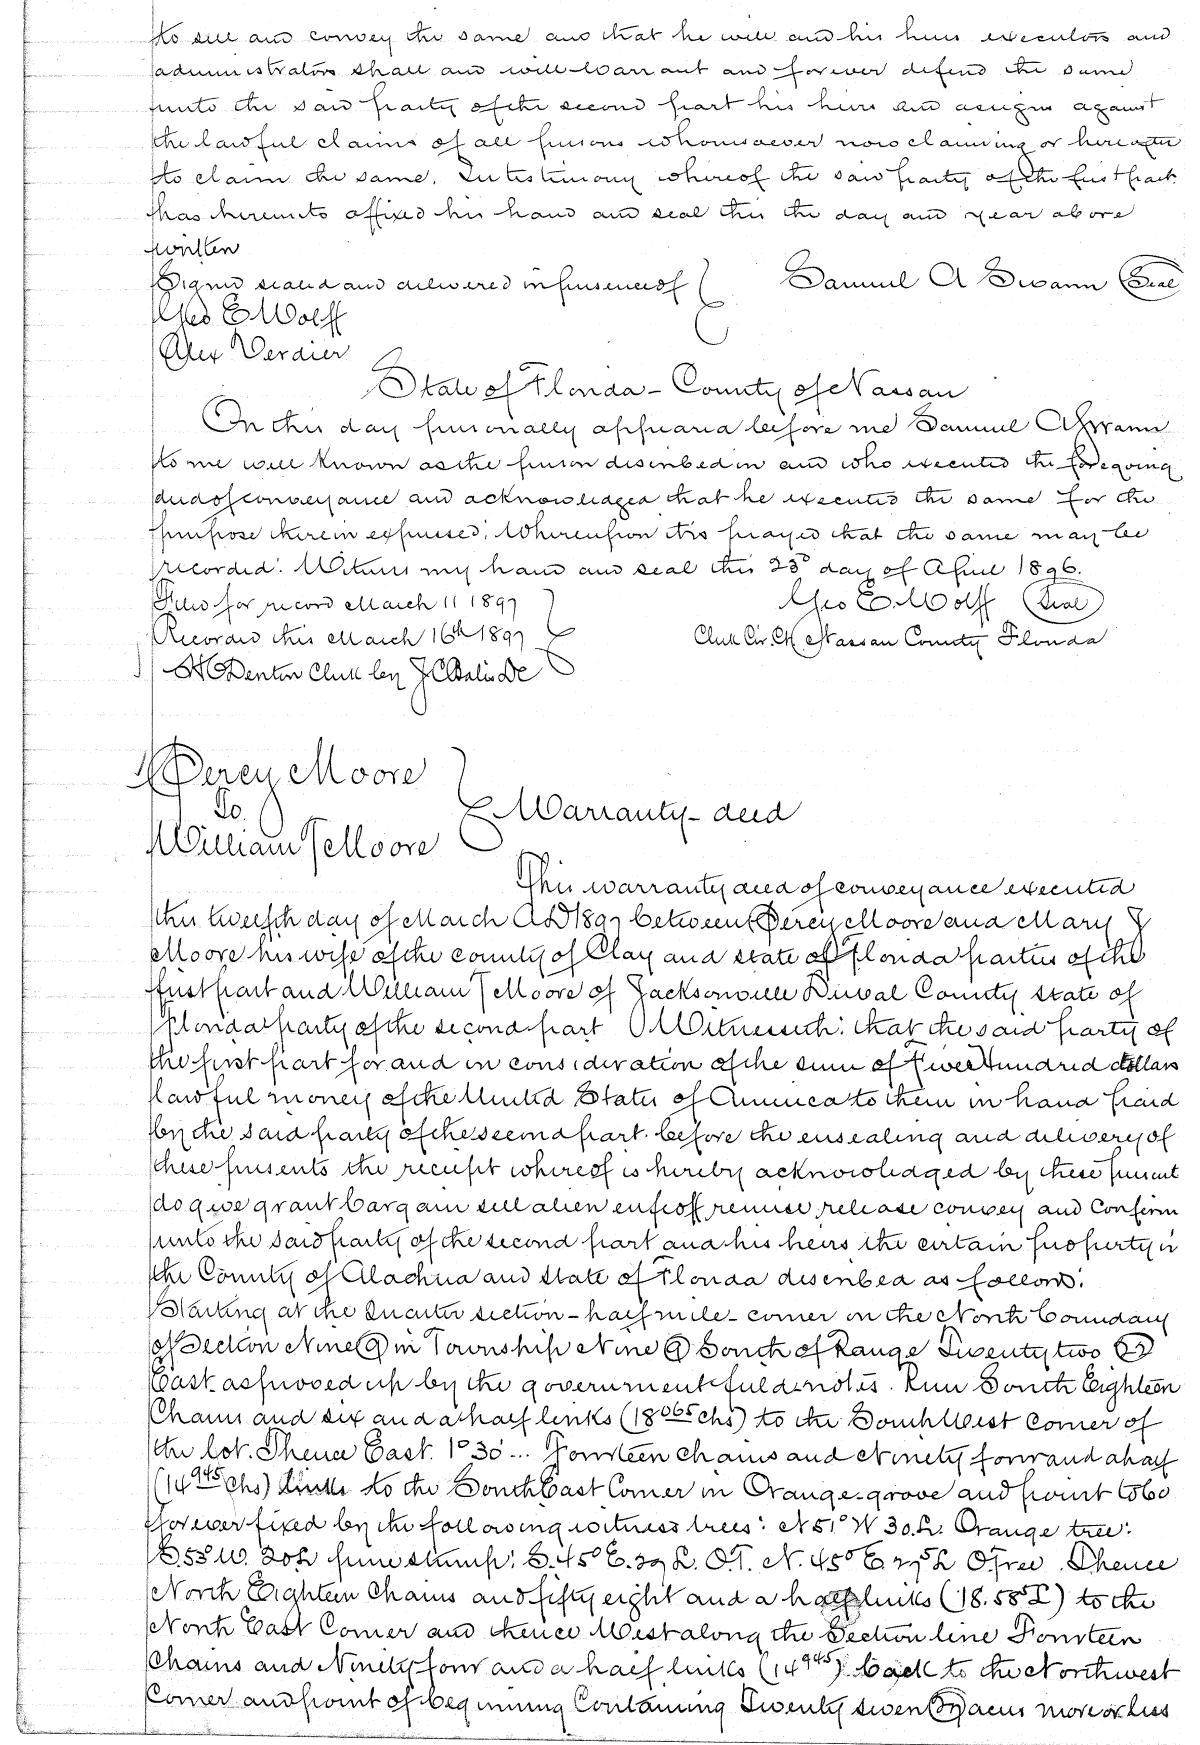 to sell and convey the same and that he will and his heirs executors and
administrators shall and will warrant and forever defend the same
unto the said party of the second part his heirs and assigns against
the lawful claims of all persons whomsoever now claiming or hereafter
to claim the same. In testimony whereof the said party of the first part
has hereunto affixed his hand and seal this the day and year above
written
Signed sealed and delivered in presence of
Samuel A Swann Seal
Geo E Wolff
Alex Verdier
State of Florida - County of Nassau
On this day personally appeared before me Samuel A Swann
to me well known as the person described in and who executed the foregoing
deed of conveyance and acknowledged that he executed the same for the
purpose therein expressed: Whereupon it is prayed that the same may be
recorded: Witness my hand and seal this 23d day of April 1896.
Filed for record March 11 1897
Geo E. Wolff Seal
Recorded this March 16th 1897
Clerk Cir. Ct. Nassau County Florida
H C Denton Clerk by J C DC
Percy Moore
To
William T Moore
Warranty - deed
This warranty deed of conveyance executed
this twelfth day of March AD 1897 between Percy Moore and Mary J
Moore his wife of the county of Clay and state of Florida parties of the
first part and William T Moore of Jacksonville Duval County state of
Florida party of the second part Witnesseth: that the said party of
the first part for and in consideration of the sum of Five Hundred dollars
lawful money of the United States of America to them in hand paid
by the said party of the second part before the ensealing and delivery of
these presents the receipt whereof is hereby acknowledged by these present
do give grant bargain sell alien enfeoff remise release convey and Confirm
unto the said party of the second part and his heirs the certain property in
the County of Alachua and state of Florida described as follows:
Starting at the Quarter section - half mile - corner on the North boundary
of Section Nine (9) in Township Nine (9) South of Range Twenty two (22)
East as proved up by the government field notes. Run South Eighteen
Chains and six and a half links (18 065 chs) to the South West Corner of
the lot. Thence East. 1° 30' ... Fourteen chains and Ninety four and a half
(14 945 Chs) links to the South East Corner in Orange-grove and point to be
forever fixed by the following witness trees: N 51° W 30. L. Orange tree:
S. 55° W. 20 L pine stump: S. 45° E. 39 L. O.T. N. 45° E L O Tree. Thence
North Eighteen Chains and fifty eight and a half links (18.585 L) to the
North East Corner and thence West along the Section line Fourteen
Chains and Ninety four and a half links (14 945) back to the Northwest
Corner and point of beginning Containing Twenty seven (27) acres more or less